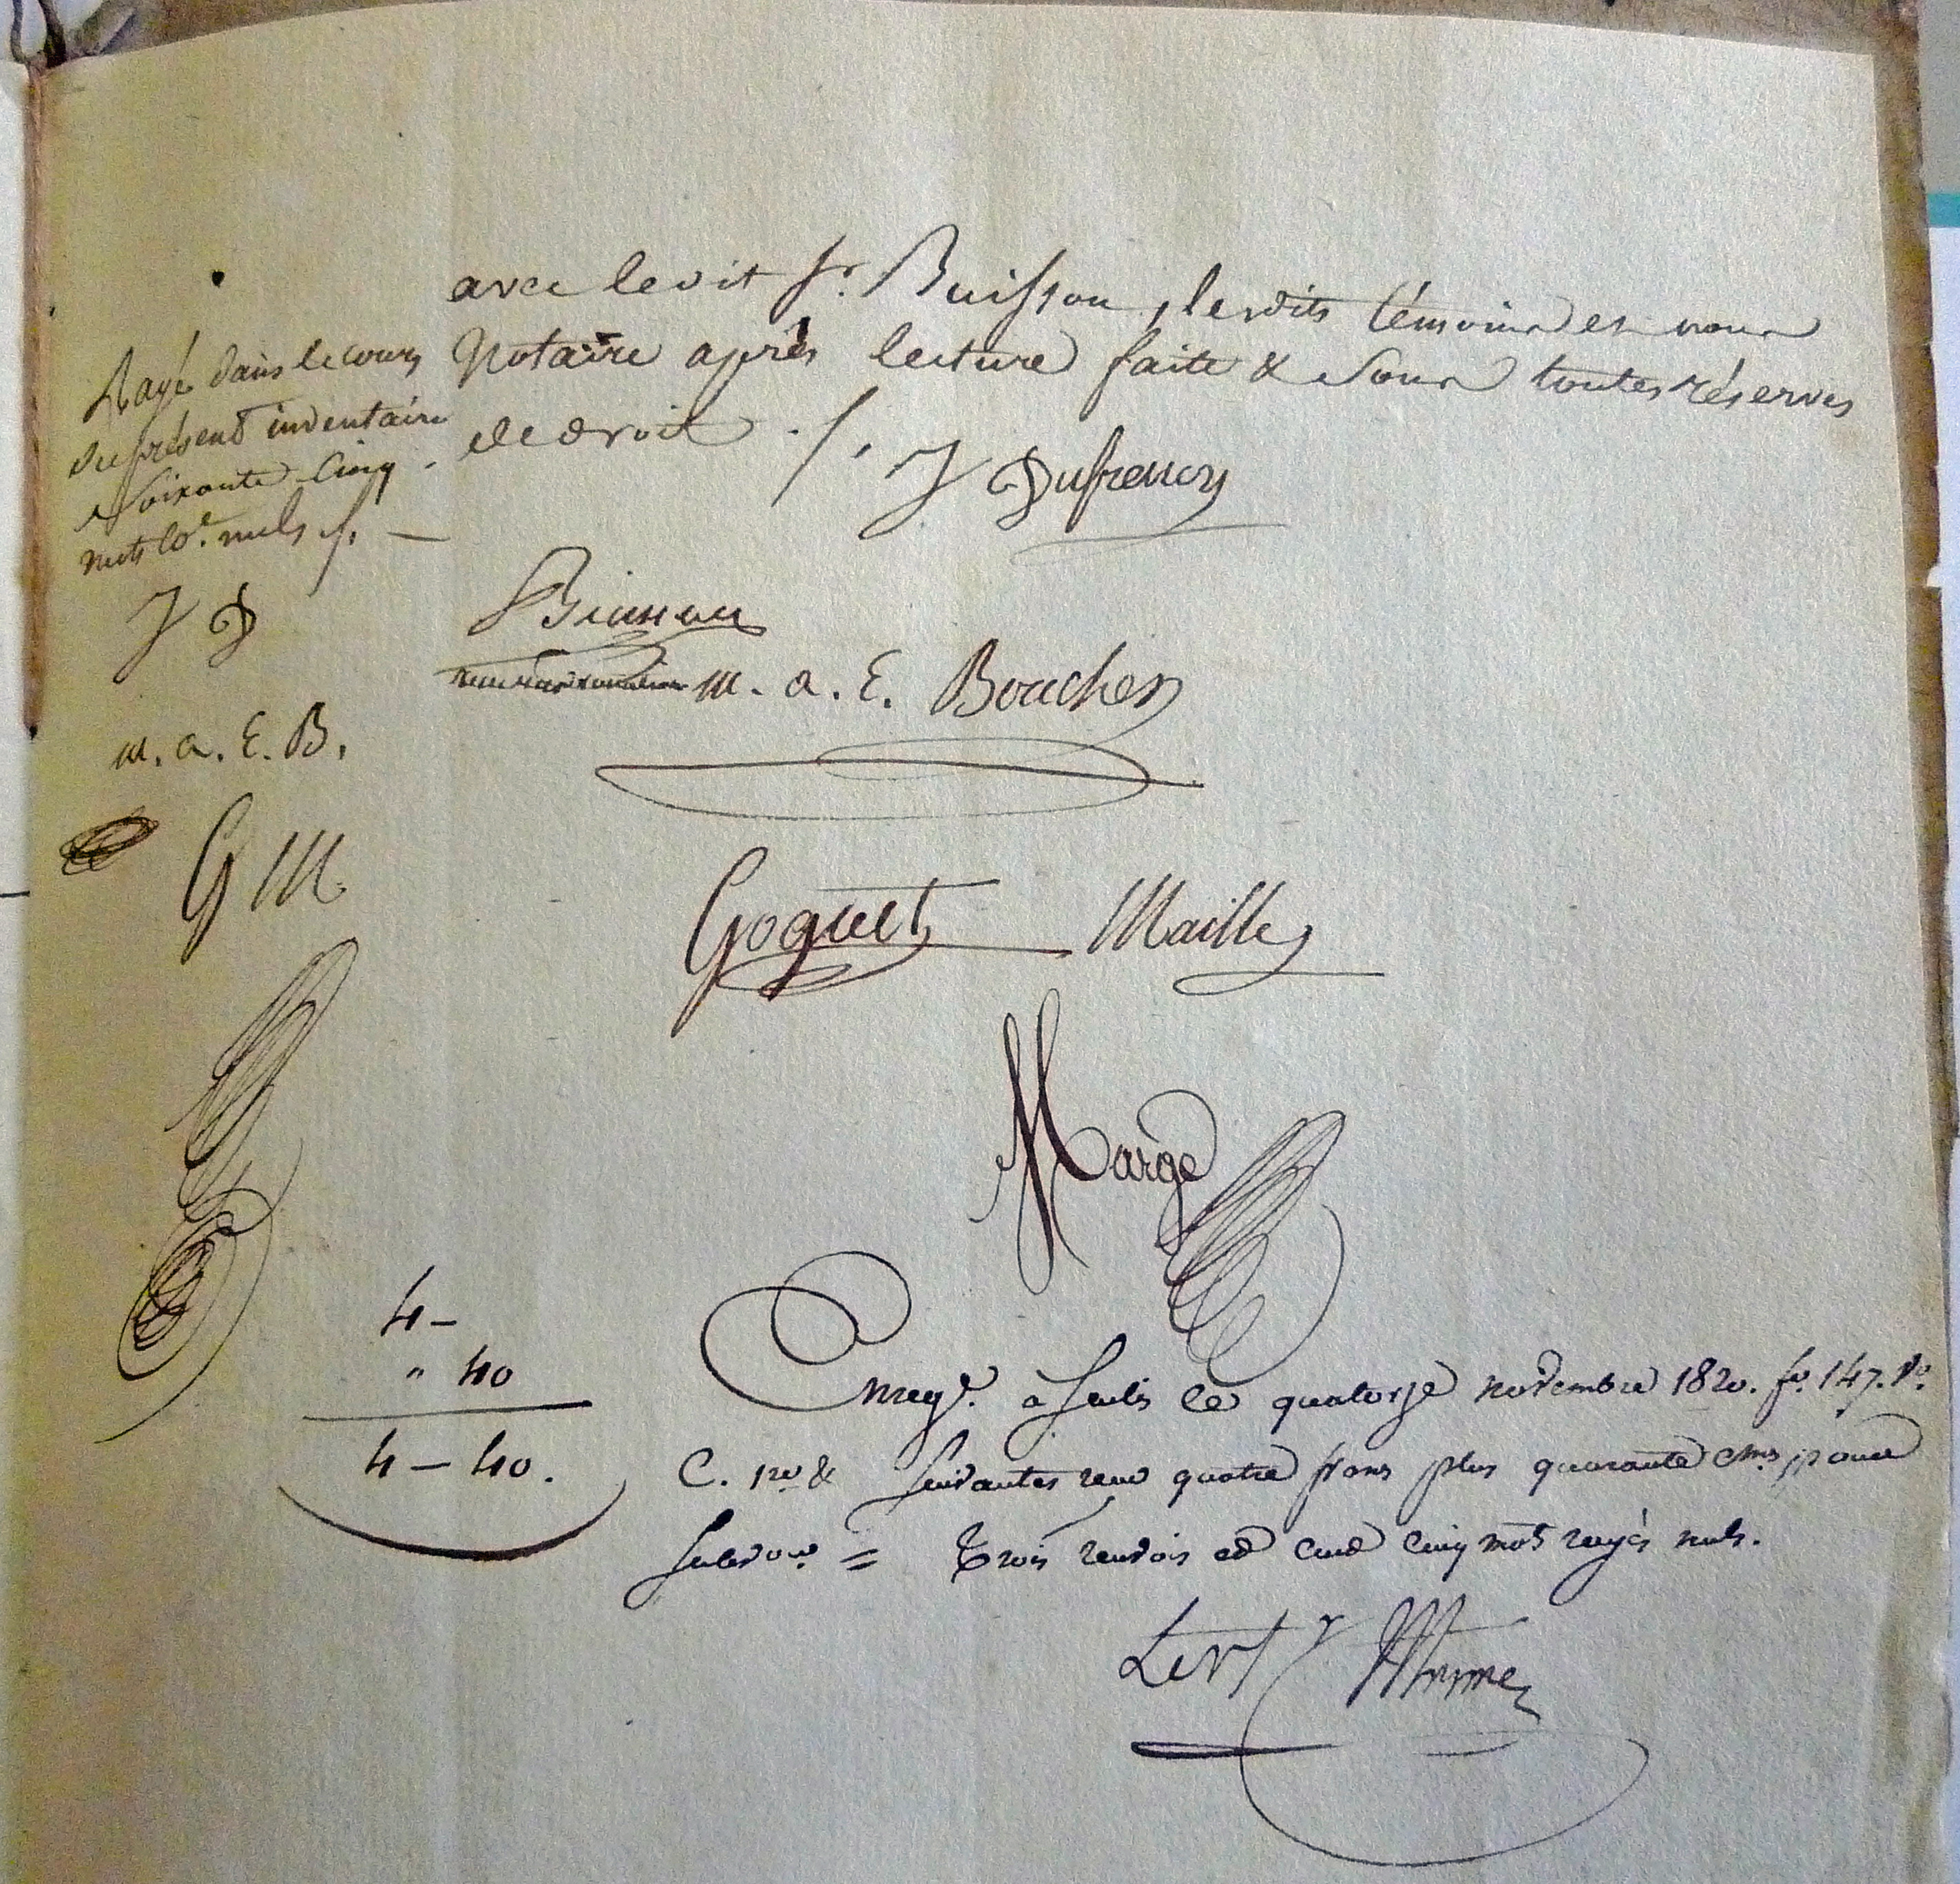 avec ledit Sr. Buisson, lesdits témoins et nous
Notaire après lecture faite & sous toutes réserves
de droit ./.
J Dufrenoy
Rayé dans le cours
du présent inventaire
soixante cinq
mots co.e nuls ./. —
J D
Buisson
m. a. E. Boucher
m. a. E. B.
G M
Goguet Mailles
Margé
4 -
" 40
4 - 40.
Enregé. à Senlis le quatorze novembre 1820. fo. 147. Vo.
C. 1re & suivantes reçu quatre frans plus quarante cmes pour
subvon. = Trois renvois et cent cinq mots rayés nuls.